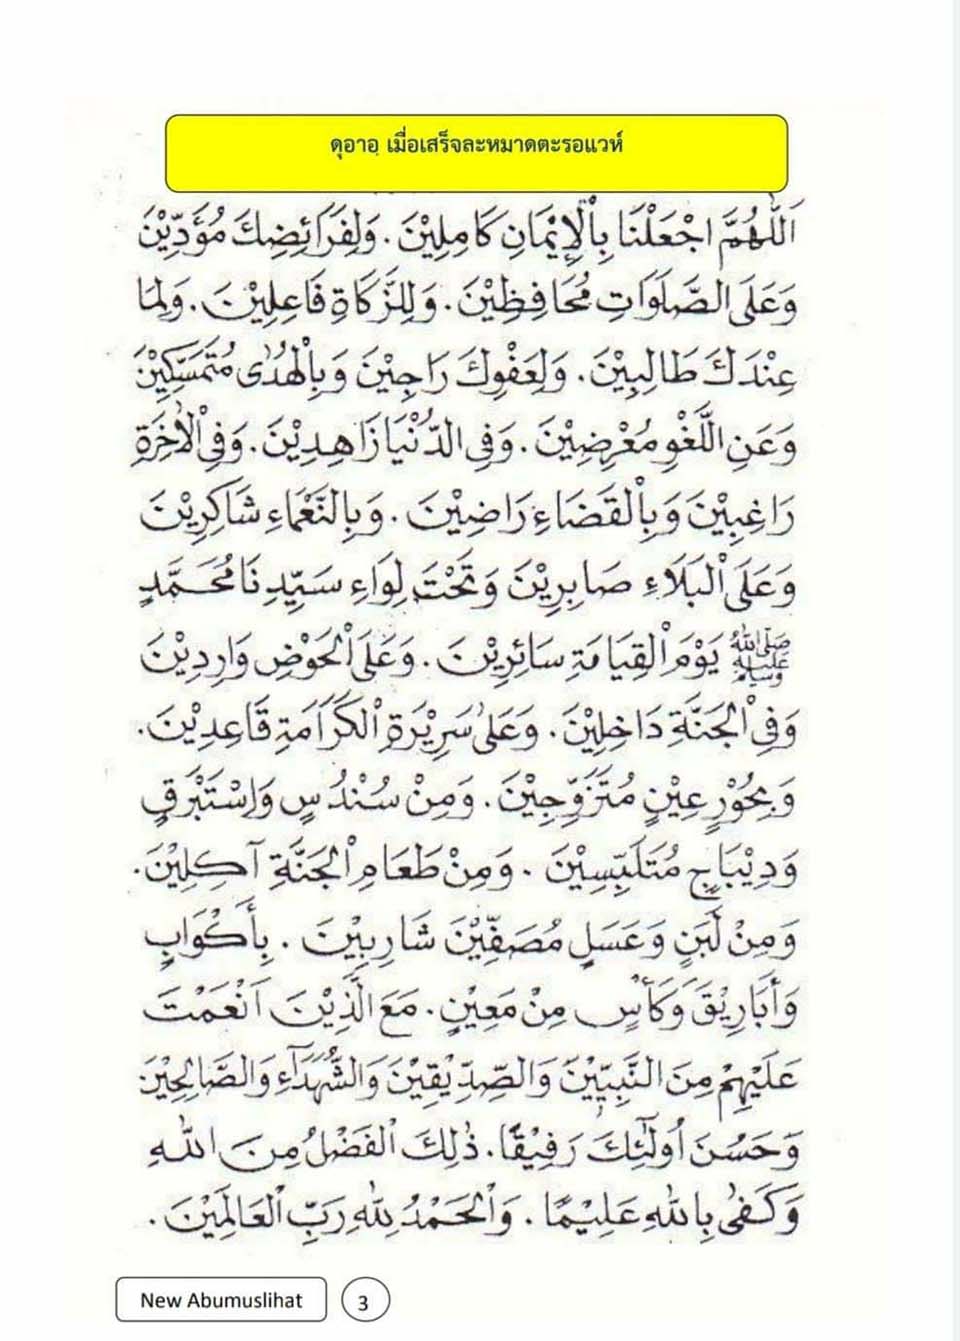 ดุอาอฺ เมื่อเสร็จละหมาดตะรอแวห์
اَللّٰهُمَّ اجْعَلْنَا بِاْلإِيْمَانِ كَامِلِيْنَ. وَلِفَرَائِضِكَ مُؤَدِّيْنَ
وَعَلَى الصَّلَوَاتِ مُحَافِظِيْنَ. وَلِلزَّكَاةِ فَاعِلِيْنَ. وَلِمَا
عِنْدَكَ طَالِبِيْنَ. وَلِعَفْوِكَ رَاجِيْنَ وَبِاْلهُدٰى مُتَمَسِّكِيْنَ
وَعَنِ اللَّغْوِ مُعْرِضِيْنَ. وَفِى الدُّنْيَا زَاهِدِيْنَ. وَفِى اْلأٰخِرَةِ
رَاغِبِيْنَ وَبِاْلقَضَاءِ رَاضِيْنَ. وَبِالنَّعْمَاءِ شَاكِرِيْنَ
وَعَلَى اْلبَلَاءِ صَابِرِيْنَ وَتَحْتَ لِوَاءِ سَيِّدِنَا مُحَمَّدٍ
ﷺ يَوْمَ اْلقِيَامَةِ سَائِرِيْنَ. وَعَلَى اْلحَوْضِ وَارِدِيْنَ
وَفِى اْلجَنَّةِ دَاخِلِيْنَ. وَعَلٰى سَرِيْرَةِ اْلكَرَامَةِ قَاعِدِيْنَ.
وَبِحُوْرٍعِيْنٍ مُتَزَوِّجِيْنَ. وَمِنْ سُنْدُسٍ وَاِسْتَبْرَقٍ
وَدِيْبَاجٍ مُتَلَبِّسِيْنَ. وَمِنْ طَعَامِ اْلجَنَّةِ آكِلِيْنَ.
وَمِنْ لَبَنٍ وَعَسَلٍ مُصَفِّيْنَ شَارِبِيْنَ. بِأَكْوَابٍ
وَأَبَارِيْقَ وَكَأْسٍ مِنْ مَعِيْنٍ. مَعَ الَّذِيْنَ اَنْعَمْتَ
عَلَيْهِمْ مِنَ النَّبِيِّيْنَ وَالصِّدِّيْقِيْنَ وَالشُّهَدَآءِ وَالصَّالِحِيْنَ
وَحَسُنَ اُولٰٓئِكَ رَفِيْقًا. ذٰلِكَ اْلفَضْلُ مِنَ اللّٰهِ
وَكَفٰى بِاللّٰهِ عَلِيْمًا. وَاْلحَمْدُ لِلّٰهِ رَبِّ اْلعَالَمِيْنَ.
New Abumuslihat 3